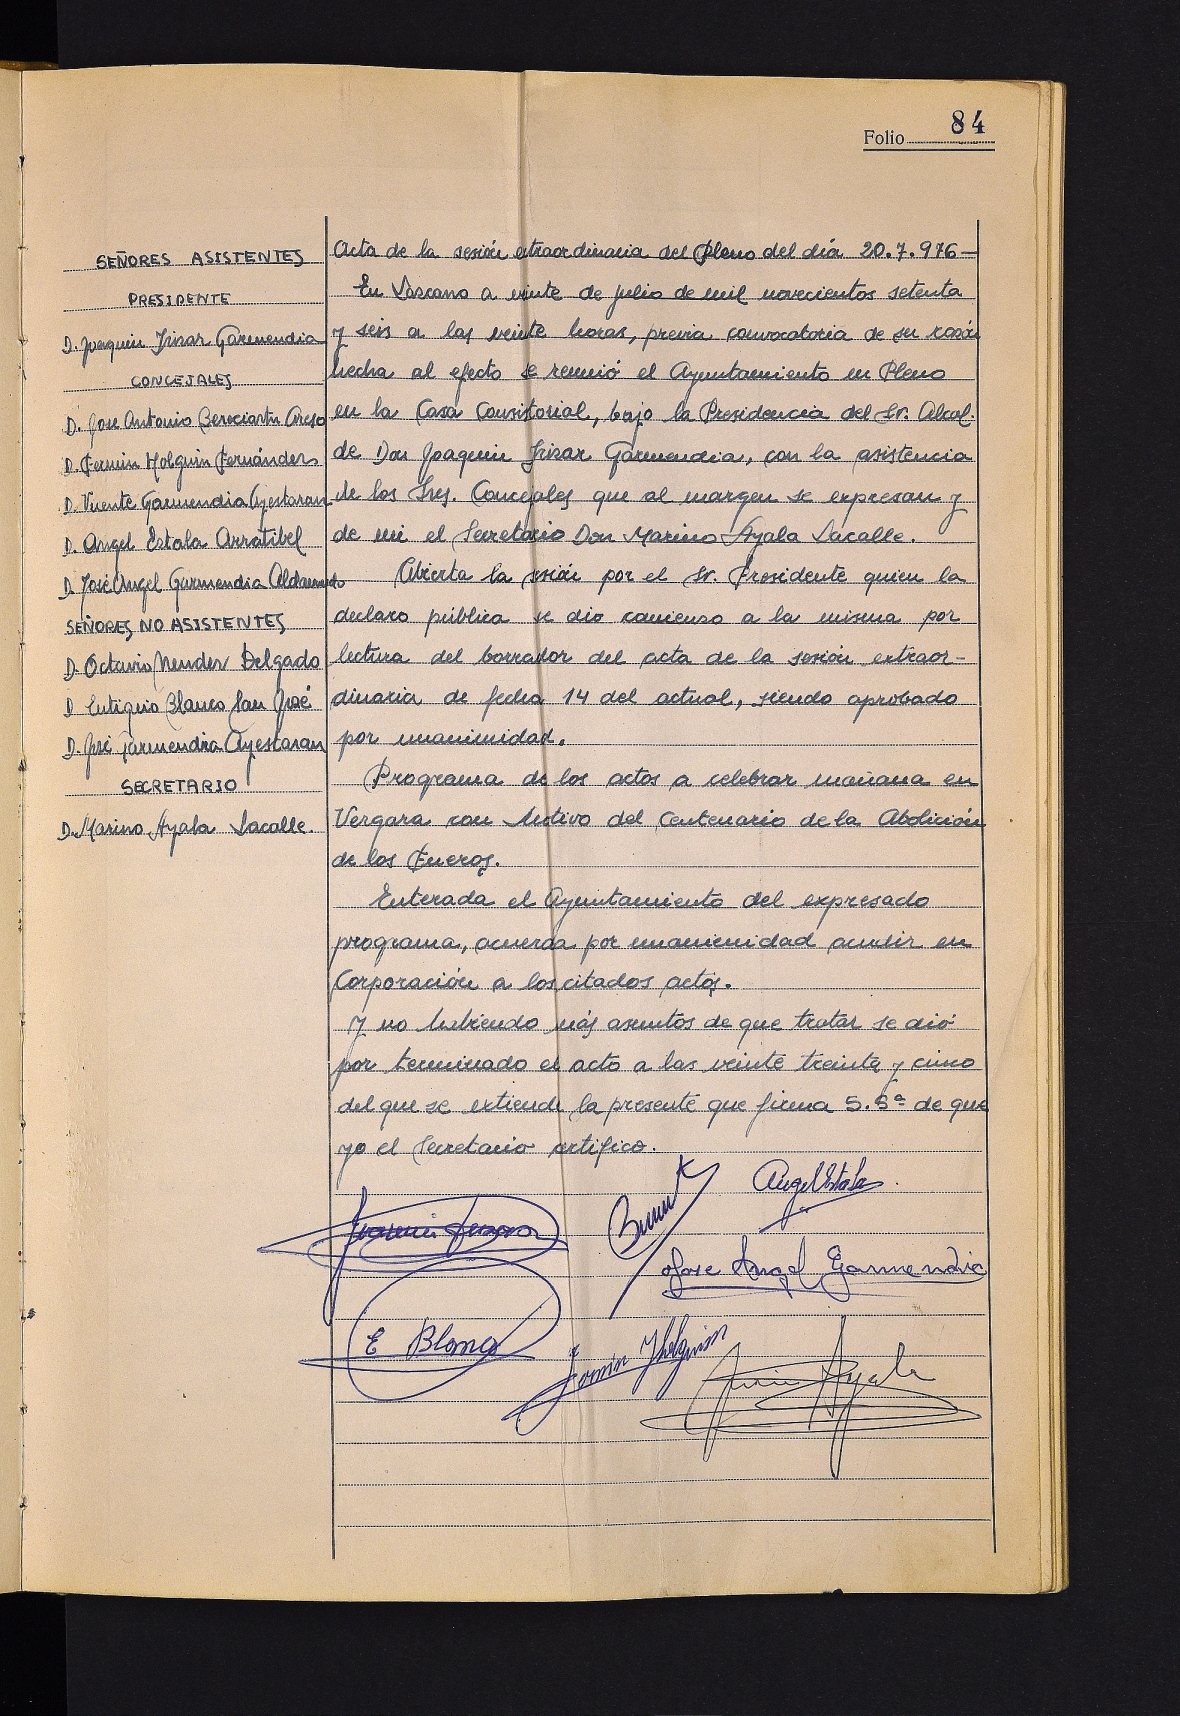 Folio 84
SEÑORES ASISTENTES
PRESIDENTE
D. Joaquin Jiszar Garmendia
CONCEJALES
D. Jose Antonio Bereciartu Areso
D. Fermin Holguin Fernández
D. Vicente Garmendia Ayestaran
D. Angel Estala Arratibel
D. José Angel Garmendia Aldasoro
SEÑORES NO ASISTENTES
D. Octavio Mendez Delgado
D Eutiquio Blanco San José
D. José Garmendia Ayestaran
SECRETARIO
D. Marino Ayala Lacalle.
Acta de la sesión extraordinaria del Pleno del día 20.7.976-
En Lazcano a veinte de julio de mil novecientos setenta
y seis a las veinte horas, previa convocatoria de su razón
hecha al efecto se reunió el Ayuntamiento en Pleno
en la Casa Consitorial, bajo la Presidencia del Sr. Alcal-
de Don Joaquin Garmendia, con la asistencia
de los Sres. Concejales que al margen se expresan y
de mi el Secretario Don Marino Ayala Lacalle.
Abierta la sesión por el Sr. Presidente quien la
declaro pública se dio comienzo a la misma por
lectura del borrador del acta de la sesión extraor-
dinaria de fecha 14 del actual, siendo aprobado
por unanimidad.
Programa de los actos a celebrar mañana en
Vergara con Motivo del Centenario de la Abolición
de los Fueros.
Enterada el Ayuntamiento del expresado
programa, acuerda por unanimidad acudir en
Corporación a los citados actos.
Y no habiendo más asuntos de que tratar se dió
por terminado el acto a las veinte treinta y cinco
del que se extiende la presente que firma S.Sª de que
yo el Secretario certifico.
Angel Estala
Jose Angel Garmendia
E Blanco
Fermin Holguin
Ayala